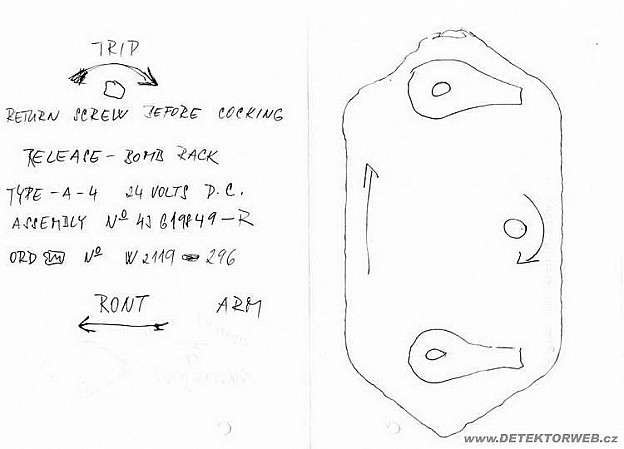 TRIP
RETURN SCREW BEFORE COCKING
RELEASE - BOMB RACK
TYPE - A-4 24 VOLTS D.C.
ASSEMBLY Nº 43G19849-R
ORD Nº W2119 296
RONT ARM
www.DETEKTORWEB.cz